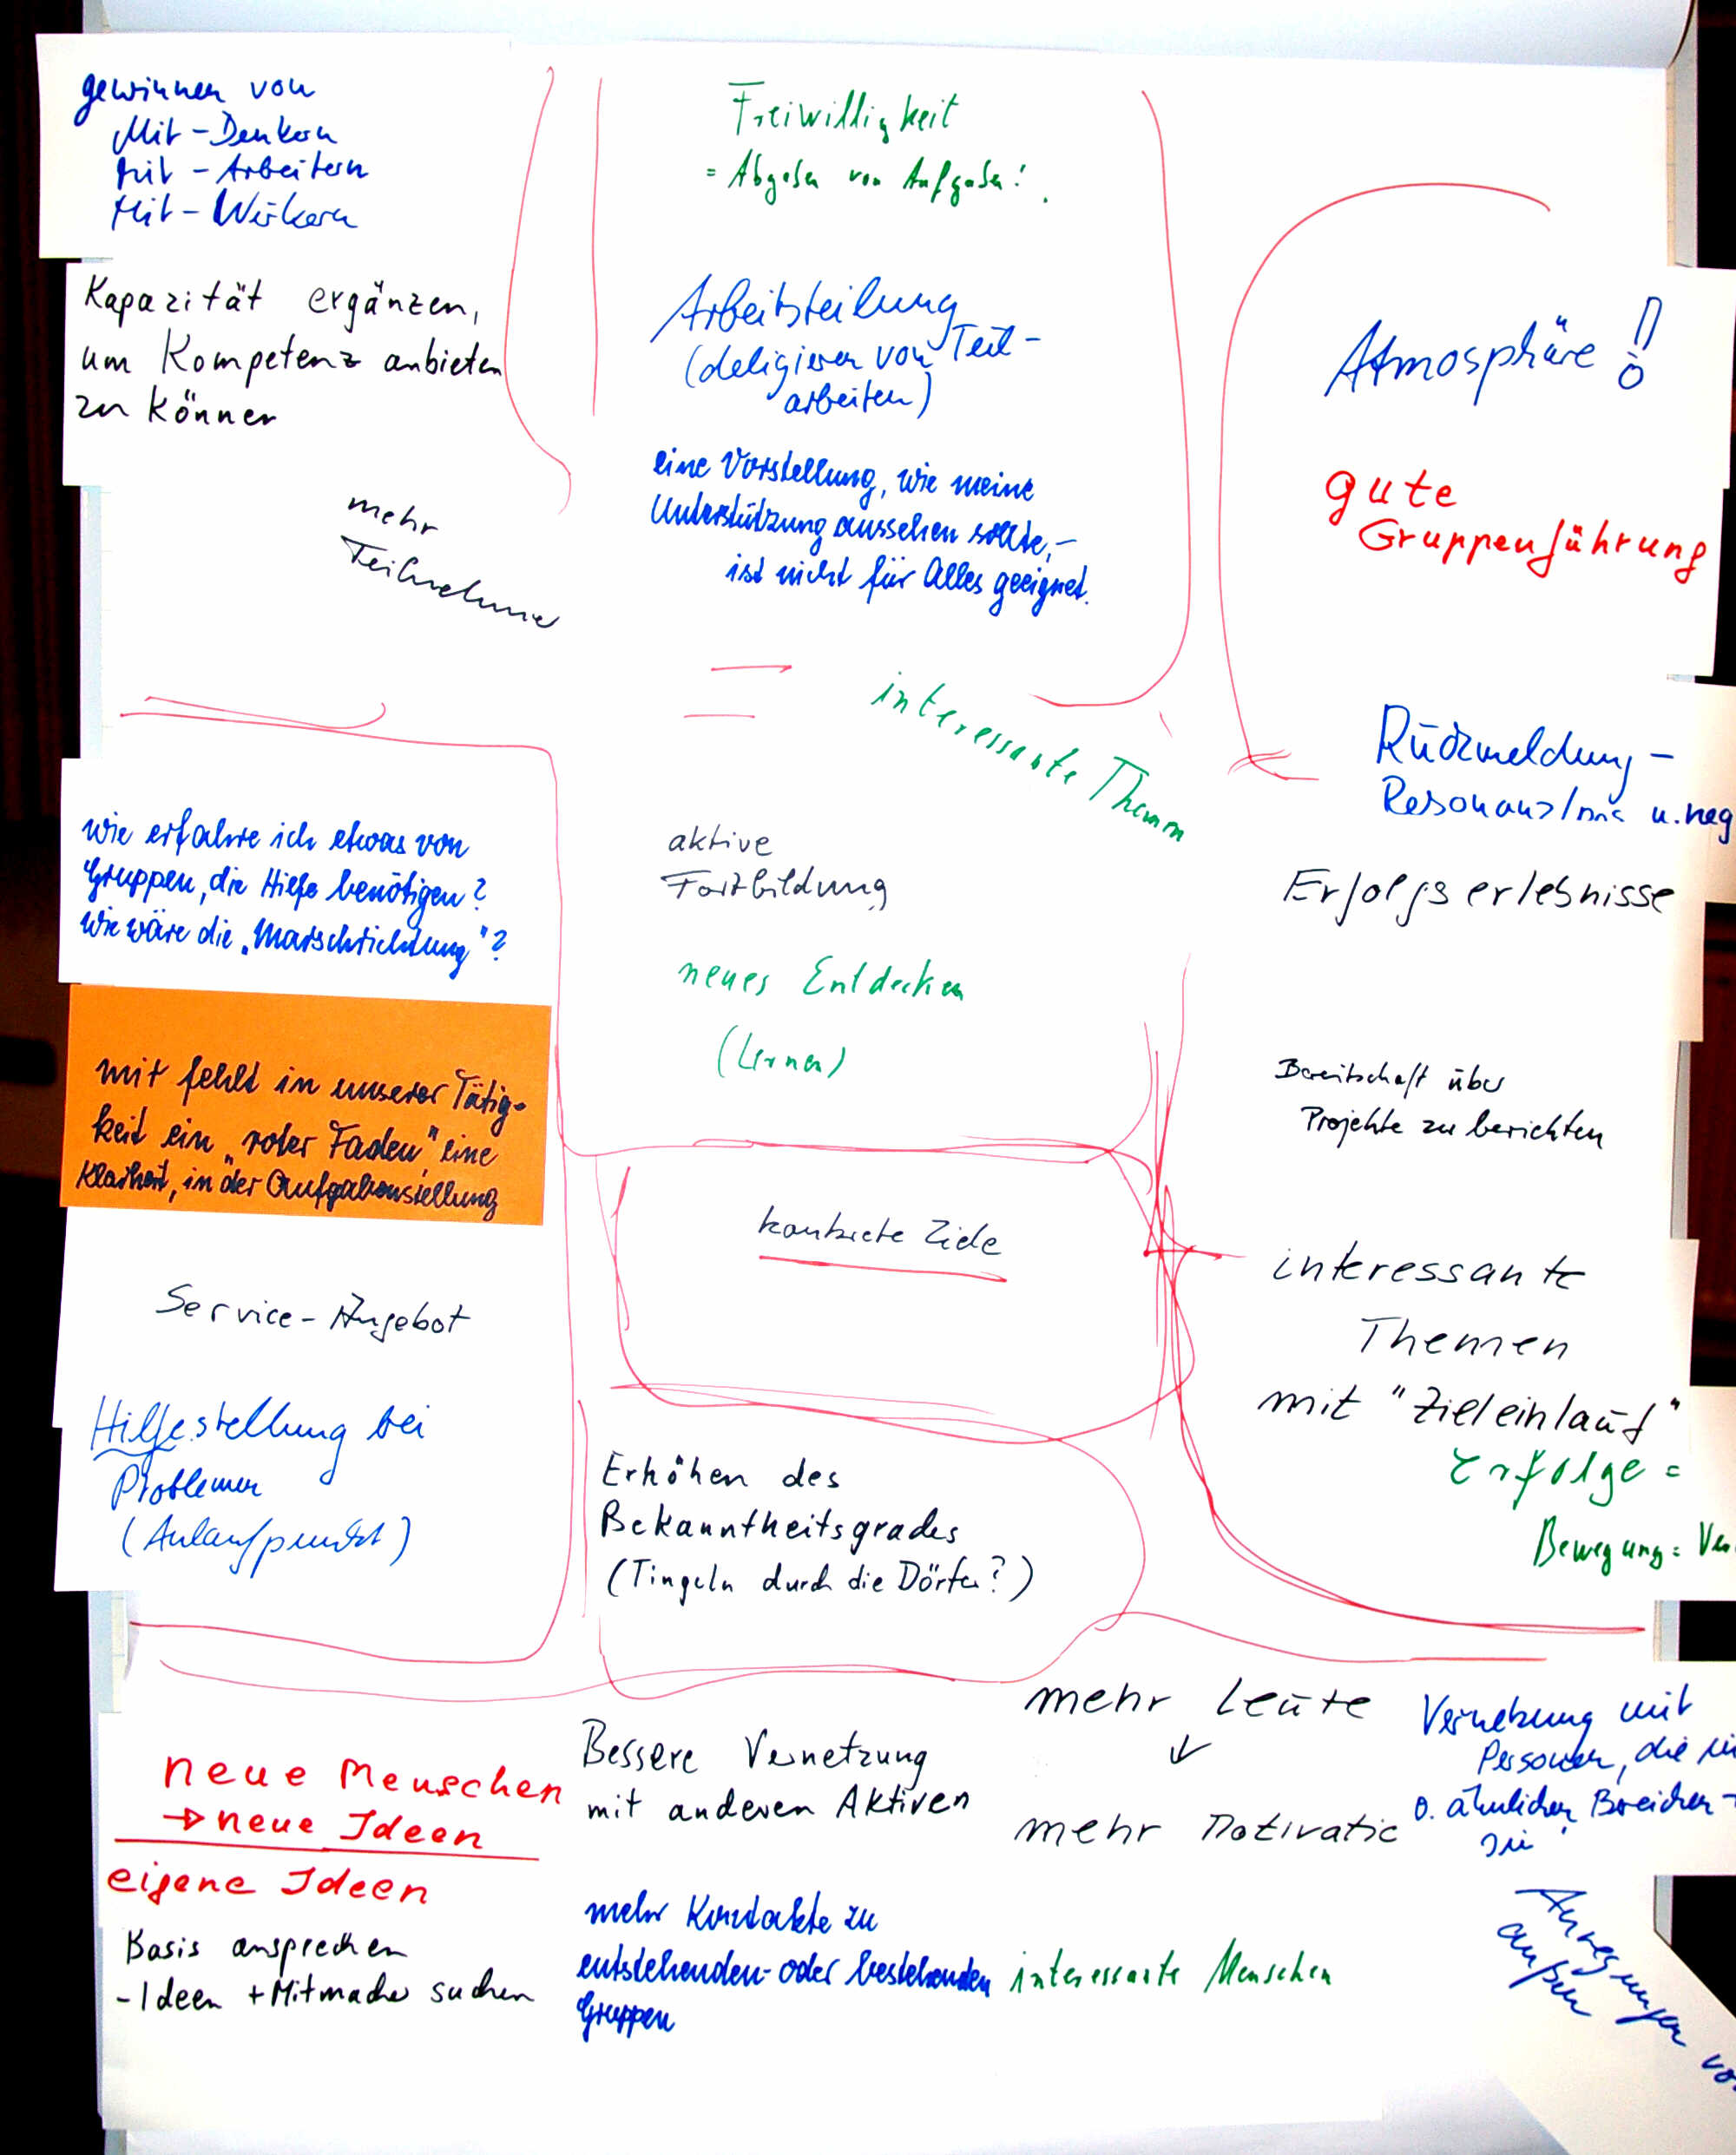 gewinnen von
Mit-Denkern
Mit-Arbeitern
Mit-Wirkern
Kapazität ergänzen,
um Kompetenz anbieten
zu können
mehr
Teilnehmer
Freiwilligkeit
= Abgeben von Aufgaben!
Arbeitsteilung
(deligieren von Teil-
arbeiten)
eine Vorstellung, wie meine
Unterstützung aussehen sollte,-
ist nicht für Alles geeignet.
interessante Themen
Atmosphäre!
gute
Gruppenführung
Rückmeldung -
Resonanz u. neg
Erfolgserlebnisse
wie erfahre ich etwas von
Gruppen, die Hilfe benötigen?
wie wäre die "Marschrichtung"?
mir fehlt in unserer Tätig-
keit ein "roter Faden", eine
Klarheit, in der Aufgabenstellung
Service-Angebot
Hilfestellung bei
Problemen
(Anlaufpunkt)
aktive
Fortbildung
neues Entdecken
(Lernen)
konkrete Ziele
Erhöhen des
Bekanntheitsgrades
(Tingeln durch die Dörfer?)
Bereitschaft über
Projekte zu berichten
interessante
Themen
mit "Zieleinlauf"
Erfolge =
Bewegung = Ver
neue Menschen
→ neue Ideen
eigene Ideen
Basis ansprechen
- Ideen + Mitmacher suchen
Bessere Vernetzung
mit anderen Aktiven
mehr Kontakte zu
entstehenden- oder bestehenden
Gruppen
mehr Leute
↓
mehr Motivatio
interessante Menschen
Vernetzung mit
Personen, die
o. ähnlichen Bereichen
Anregungen vo
außen